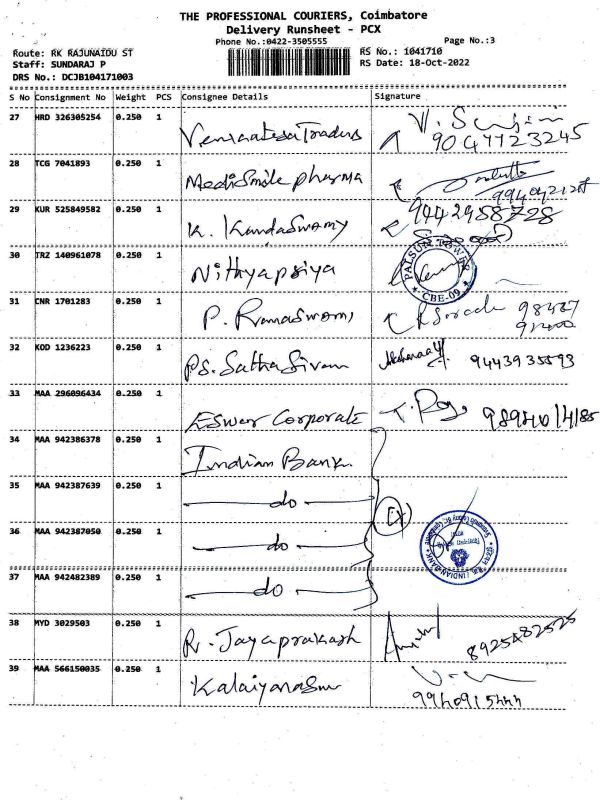 THE PROFESSIONAL COURIERS, Coimbatore
Delivery Runsheet - PCX
Phone No.:0422-3505555
Page No.:3
Route: RK RAJUNAIDU ST
RS No.: 1041710
Staff: SUNDARAJ P
RS Date: 18-Oct-2022
DRS No.: DCJB104171003
S No Consignment No Weight PCS Consignee Details Signature
27 HRD 326305254 0.250 1 Venkatesa Traders
28 TCG 7041893 0.250 1 Medismile pharma
29 KUR 525849582 0.250 1 K. Kandaswamy 9442958728
30 TRZ 140961078 0.250 1 Nithyapriya
PALSUN TOWER
CBE-09
31 CNR 1701283 0.250 1 P. Ramaswami
32 KOD 1236223 0.250 1 PS. Sathasivam 9443935593
33 MAA 296096434 0.250 1 Eswar Corporate
34 MAA 942386378 0.250 1 Indian Bank
35 MAA 942387639 0.250 1 do
36 MAA 942387050 0.250 1 do
INDIAN BANK
37 MAA 942482389 0.250 1 do
38 MYD 3029503 0.250 1 R. Jayaprakash 8925482525
39 MAA 566150035 0.250 1